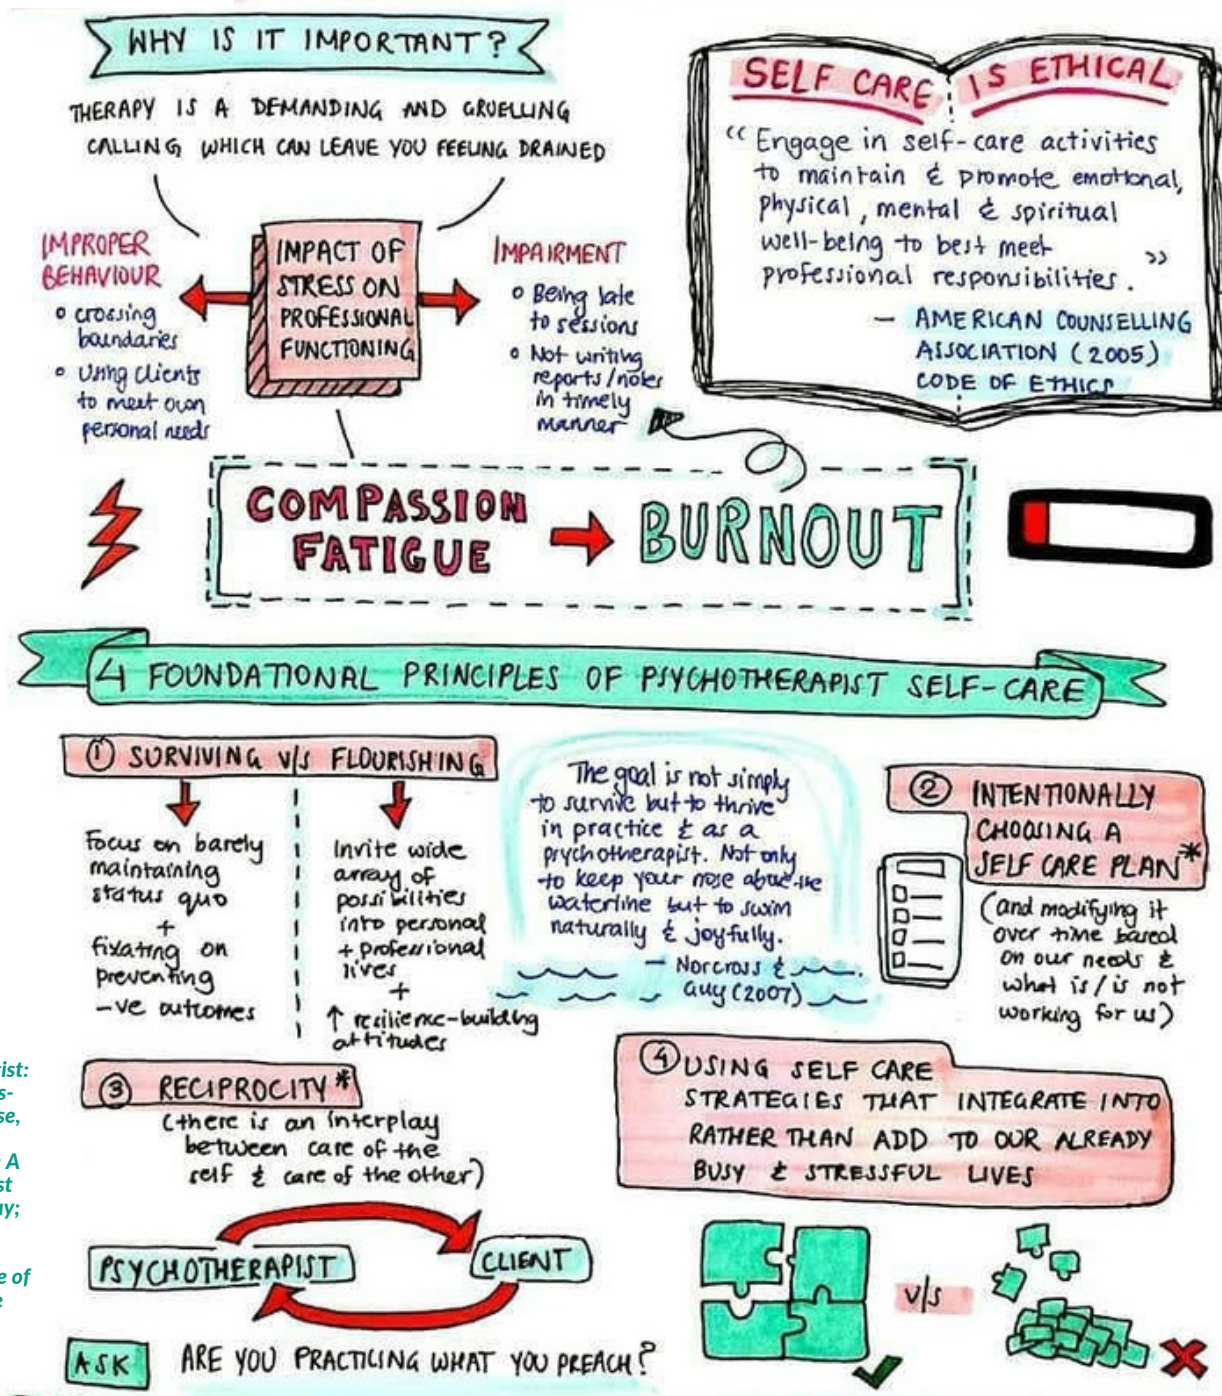 WHY IS IT IMPORTANT?
THERAPY IS A DEMANDING AND GRUELLING
CALLING WHICH CAN LEAVE YOU FEELING DRAINED
IMPROPER
BEHAVIOUR
o crossing
boundaries
o Using clients
to meet own
personal needs
IMPACT OF
STRESS ON
PROFESSIONAL
FUNCTIONING
IMPAIRMENT
o Being late
to sessions
o Not writing
reports/notes
in timely
manner
SELF CARE IS ETHICAL
"Engage in self-care activities
to maintain & promote emotional,
physical, mental & spiritual
well-being to best meet
professional responsibilities."
— AMERICAN COUNSELLING
ASSOCIATION (2005)
CODE OF ETHICS
COMPASSION
FATIGUE
BURNOUT
4 FOUNDATIONAL PRINCIPLES OF PSYCHOTHERAPIST SELF-CARE
① SURVIVING v/s FLOURISHING
Focus on barely
maintaining
status quo
+
fixating on
preventing
-ve outcomes
Invite wide
array of
possibilities
into personal
+ professional
lives
+
↑ resilience-building
attitudes
The goal is not simply
to survive but to thrive
in practice & as a
psychotherapist. Not only
to keep your nose above the
waterline but to swim
naturally & joyfully.
— Norcross &
Guy (2007)
② INTENTIONALLY
CHOOSING A
SELF CARE PLAN*
(and modifying it
over time based
on our needs &
what is/is not
working for us)
③ RECIPROCITY*
(there is an interplay
between care of the
self & care of the other)
PSYCHOTHERAPIST
CLIENT
ASK ARE YOU PRACTICING WHAT YOU PREACH?
④ USING SELF CARE
STRATEGIES THAT INTEGRATE INTO
RATHER THAN ADD TO OUR ALREADY
BUSY & STRESSFUL LIVES
v/s
ist:
s-
se,
A
st
uy;
e of
e